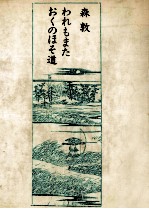 森敦
われもまた
おくのほそ道